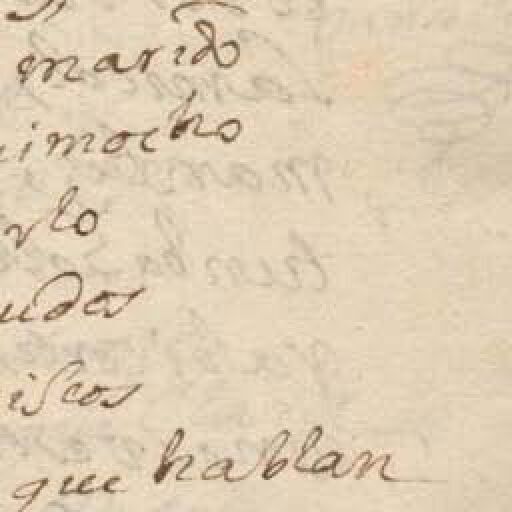 marido
imocho
rlo
udes
iscos
que hablan